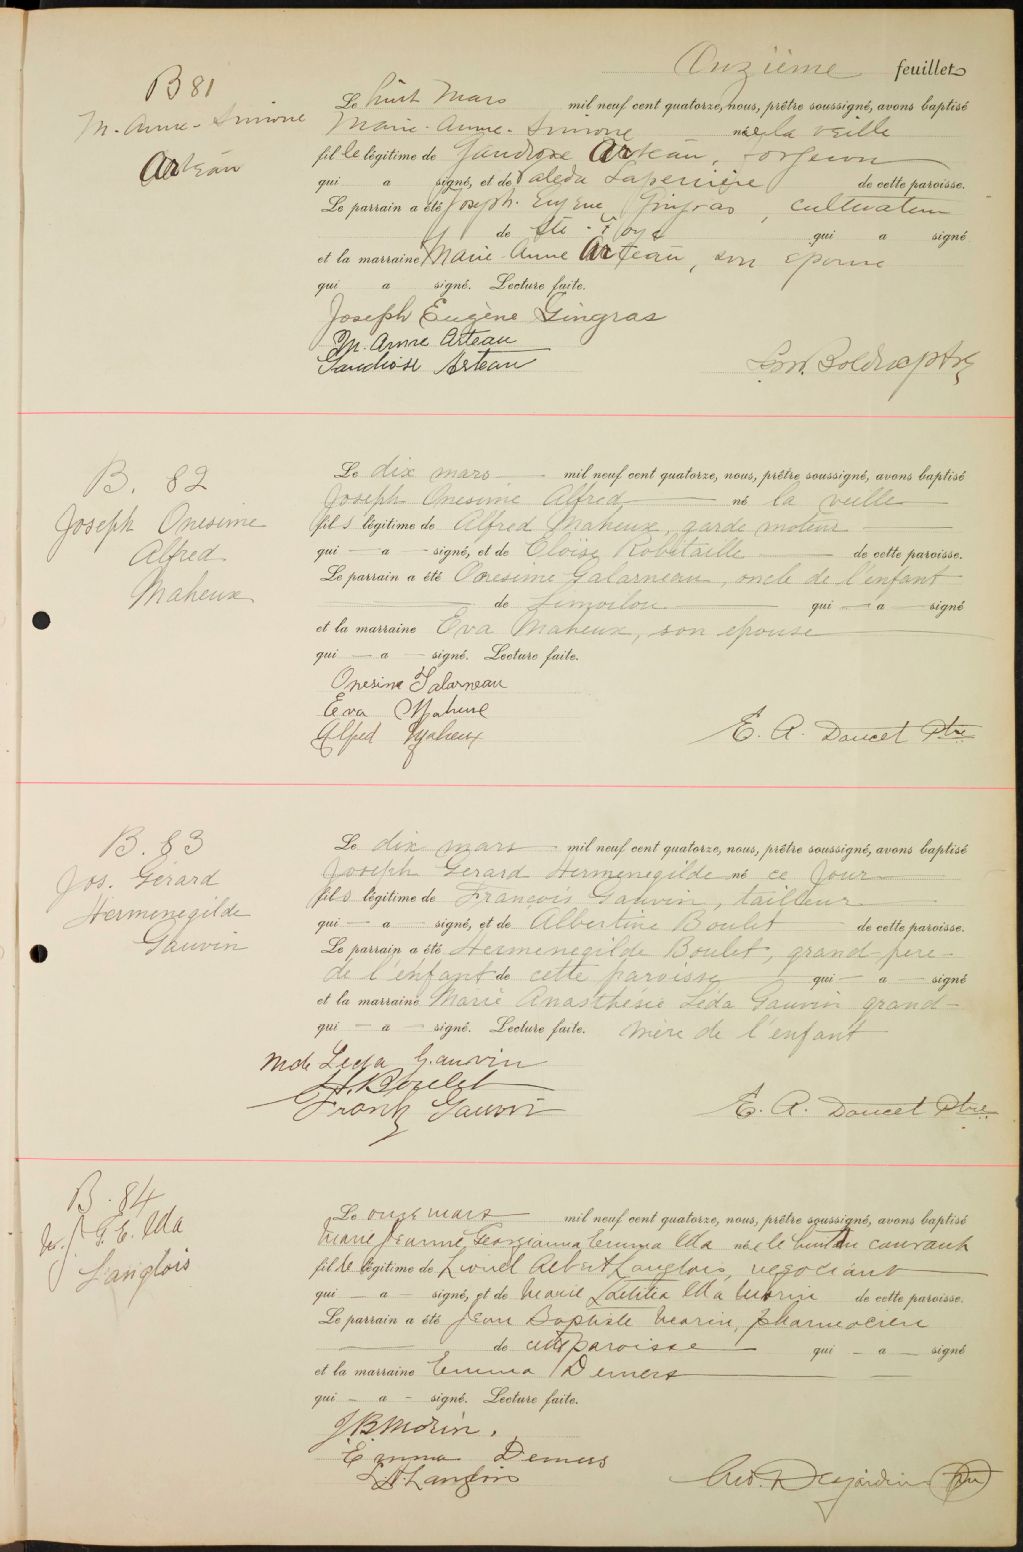 Onzième feuillet
B 81
M. Anne - Simone
Arteau
Le huit Mars mil neuf cent quatorze, nous, prêtre soussigné, avons baptisé
Marie - Anne - Simone née la veille
fille légitime de Gaudiose Arteau, forgeron
qui a signé, et de Valeda Laperrière de cette paroisse.
Le parrain a été Joseph Eugène Gingras, cultivateur
de Ste - Foye qui a signé
et la marraine Marie Anne Arteau, son epouse
qui a signé. Lecture faite.
Joseph Eugène Gingras
M. Anne Arteau
Gaudiose Arteau
ptre
B. 82
Joseph Onesime
Alfred
Maheux
Le dix mars mil neuf cent quatorze, nous, prêtre soussigné, avons baptisé
Joseph Onesime Alfred né la veille
fils légitime de Alfred Maheux, garde moteur
qui — a — signé, et de Eloïse Robitaille de cette paroisse.
Le parrain a été Onesime Galarneau, oncle de l'enfant
de Limoilou qui — a — signé
et la marraine Eva Maheux, son epouse
qui — a — signé. Lecture faite.
Onesime Galarneau
Eva Maheux
Alfred Maheux
E. A. Doucet Ptre
B. 83
Jos. Gérard
Hermenegilde
Gauvin
Le dix mars mil neuf cent quatorze, nous, prêtre soussigné, avons baptisé
Joseph Gerard Hermenegilde né ce jour
fils légitime de François Gauvin, tailleur
qui — a — signé, et de Albertine Boulet de cette paroisse.
Le parrain a été Hermenegilde Boulet, grand-père
de l'enfant de cette paroisse qui — a — signé
et la marraine Marie Anasthésie Léda Gauvin grand-
qui — a — signé. Lecture faite. mère de l'enfant
Mde Leda Gauvin
H. Boulet
Frank Gauvin
E. A. Doucet Ptre
B. 84
M. J. G. E. Alda
Langlois
Le onze mars mil neuf cent quatorze, nous, prêtre soussigné, avons baptisé
Marie Jeanne Georgianna Emma Alda née le huit du courant
fille légitime de Lionel Albert Langlois, negociant
qui — a — signé, et de Marie Laetitia Alda Morin de cette paroisse.
Le parrain a été Jean Baptiste Morin, pharmacien
de cette paroisse qui — a — signé
et la marraine Emma Demers
qui — a — signé. Lecture faite.
J. B. Morin.
Emma Demers
L. A. Langlois
Desjardins Ptre